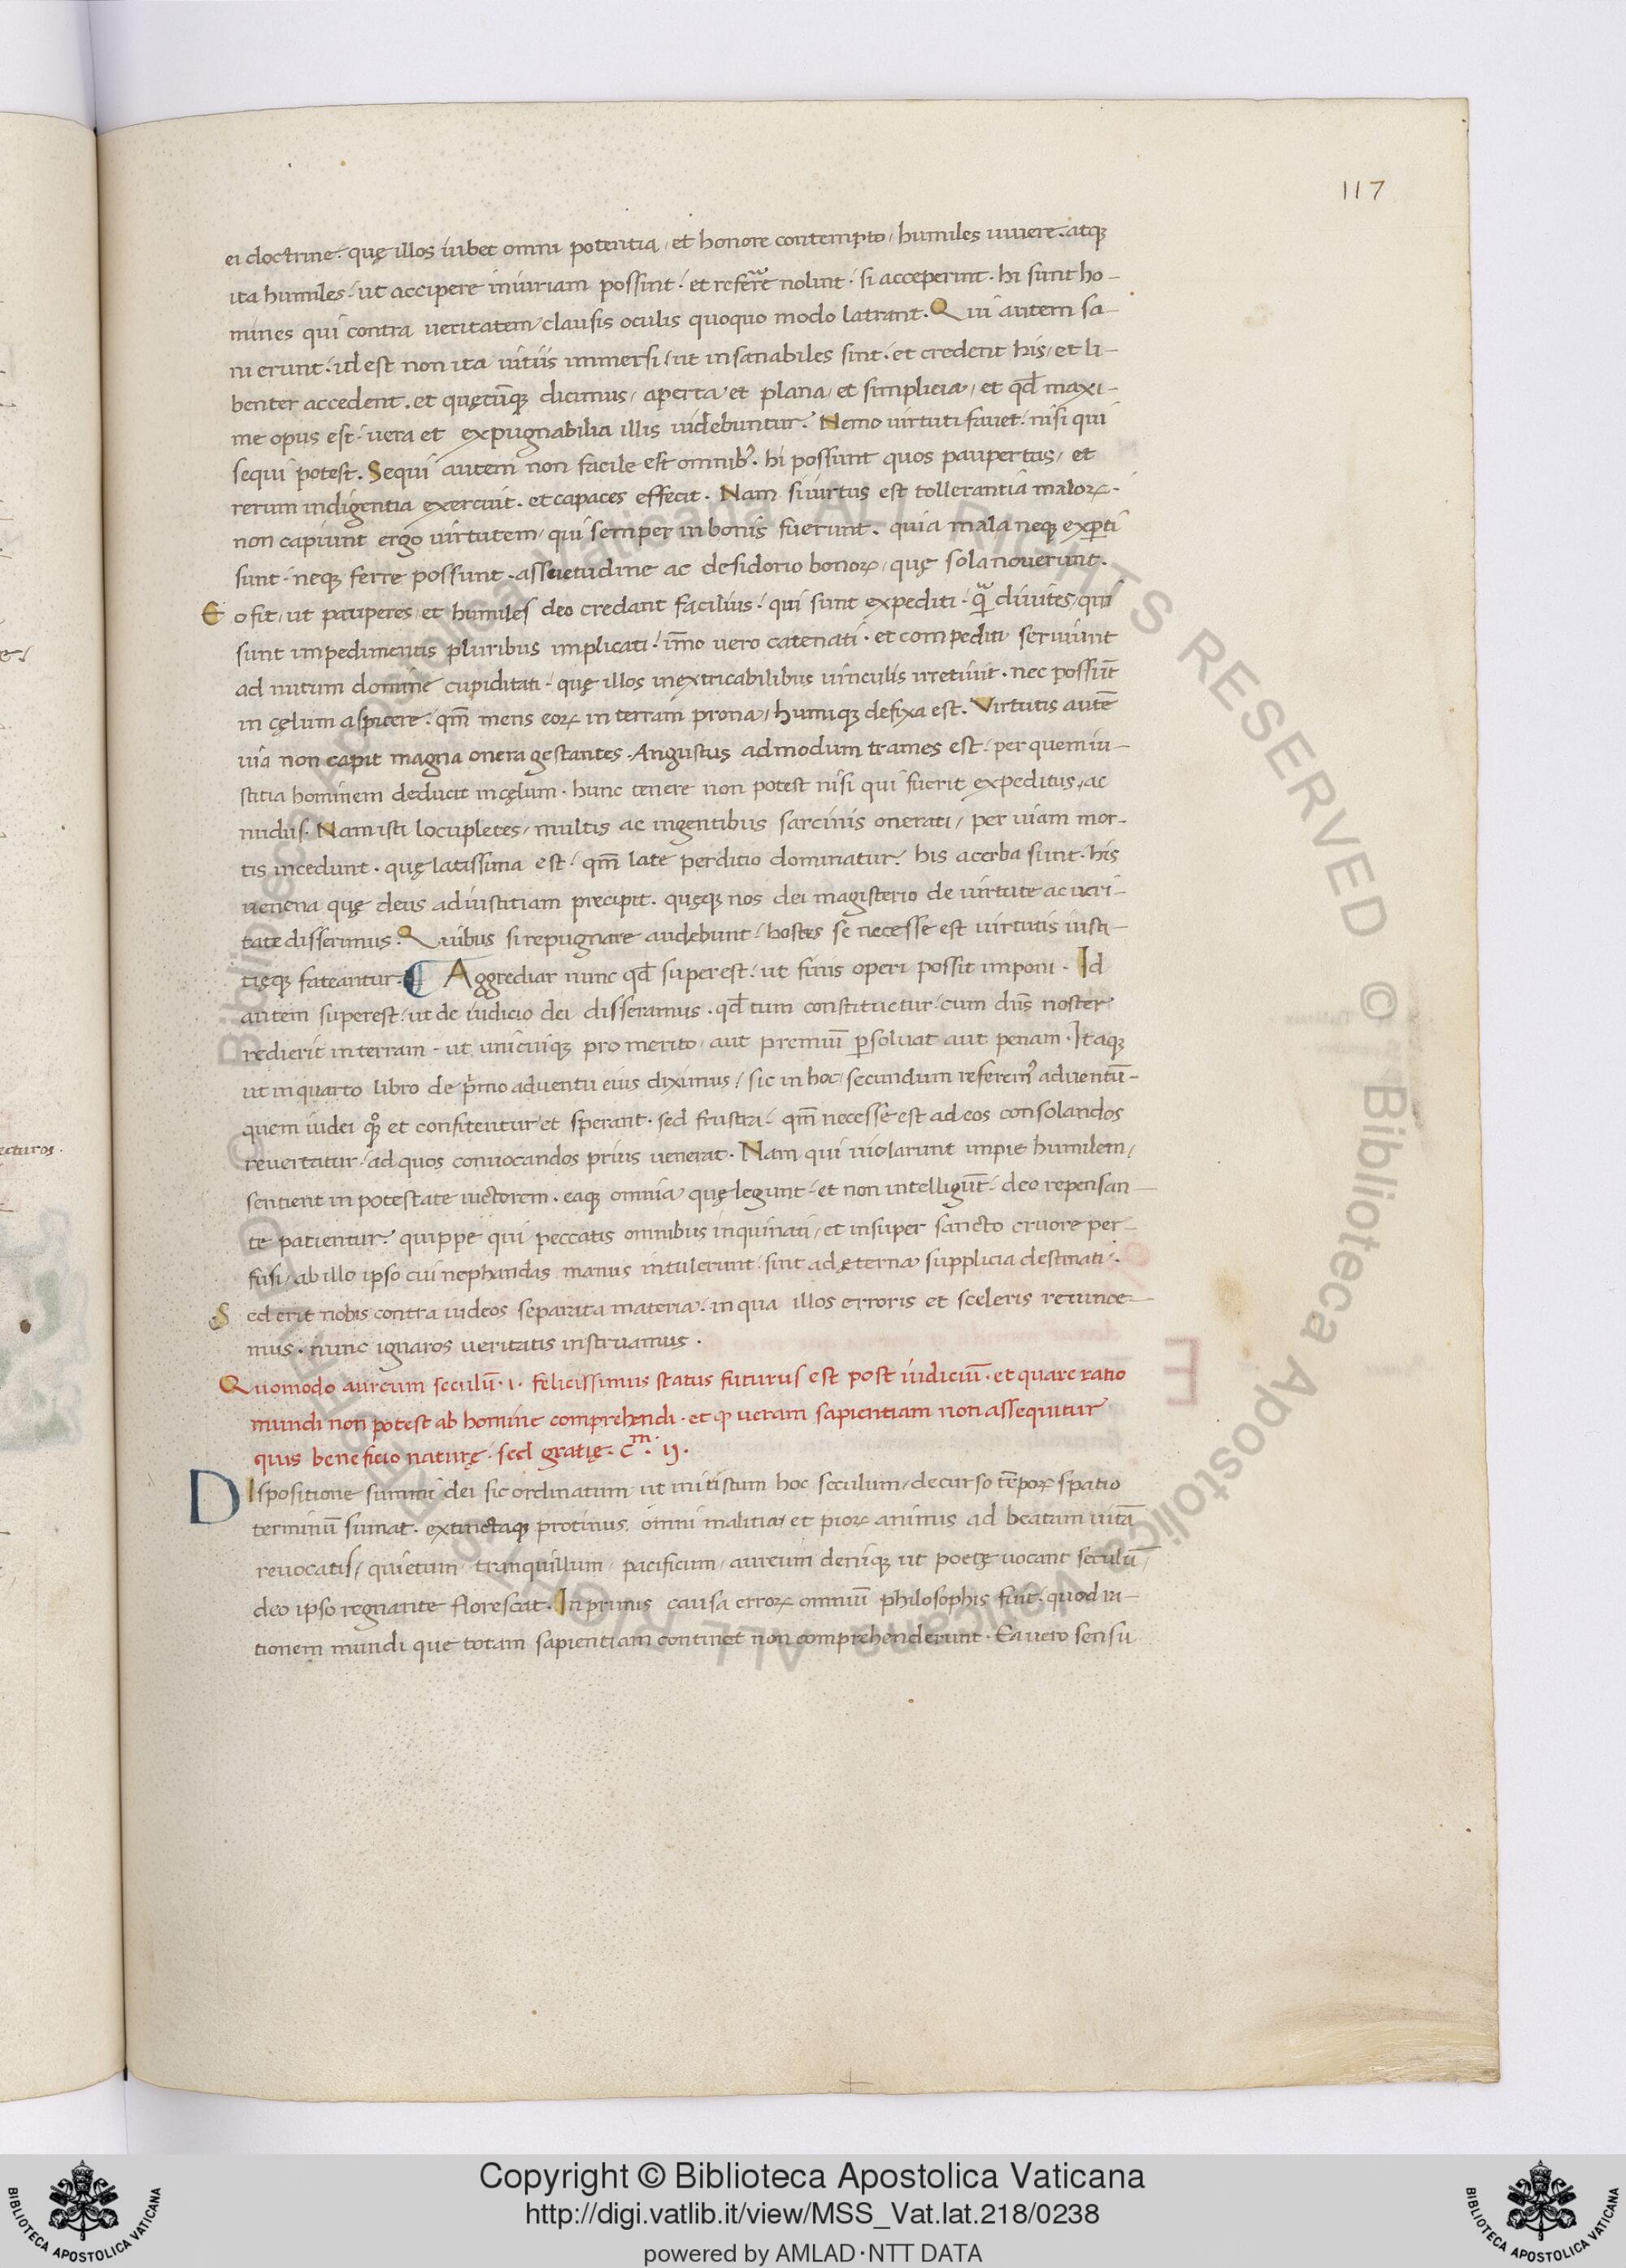 117
ei doctrine. quę illos iubet omni potentia, et honore contempto, humiles uiuere. atqꝫ
ita humiles. ut accipere iniuriam possint. et referre nolint. si acceperint. hi sunt ho-
mines qui contra ueritatem clausis oculis quoquo modo latrant. Qui autem sa-
ni erunt. id est non ita uitiis immersi, ut insanabiles sint. et credent his, et li-
benter accedent. et quęcūqꝫ dicimus, aperta et plana, et simplicia, et qđ maxi-
me opus est. uera et expugnabilia illis uidebuntur. Nemo uirtuti fauet. nisi qui
sequi potest. Sequi autem non facile est omnibꝰ. hi possunt quos paupertas, et
rerum indigentia exercuit. et capaces effecit. Nam si uirtus est tollerantia maloꝝ.
non capiunt ergo uirtutem, qui semper in bonis fuerunt. quia mala neqꝫ exꝑti
sunt. neqꝫ ferre possunt. assuetudine ac desiderio bonoꝝ, quę sola nouerunt.
Eo fit, ut pauperes, et humiles deo credant facilius. qui sunt expediti. qᵃ̄ diuites, qui
sunt impedimentis pluribus implicati. īmo uero catenati. et compediti seruiunt
ad nutum domine cupiditati. quę illos inextricabilibus uinculis irretiuit. nec possūt
in cęlum aspicere. qm̄ mens eoꝝ in terram prona, humiqꝫ defixa est. Virtutis autē
uia non capit magna onera gestantes. Angustus admodum trames est. per quem iu-
stitia hominem deducit in cęlum. hunc tenere non potest nisi qui fuerit expeditus, ac
nudus. Nam isti locupletes, multis ac ingentibus sarcinis onerati, per uiam mor-
tis incedunt. quę latissima est. qm̄ late perditio dominatur. his acerba sunt. his
uenena quę deus ad iustitiam precipit. quęqꝫ nos dei magisterio de uirtute ac ueri-
tate disserimus. Quibus si repugnare audebunt. hostes se necesse est uirtutis iusti-
tięqꝫ fateantur. ¶ Aggrediar nunc qđ superest. ut finis operi possit imponi. Id
autem superest. ut de iudicio dei disseramus. qđ tum constituetur. cum dn̄s noster
redierit in terram. ut unicuiqꝫ pro merito, aut premiū ꝑsoluat aut penam. Itaqꝫ
ut in quarto libro de pͥmo aduentu eius diximus, sic in hoc, secundum referemꝰ aduentū.
quem iudei qͦqꝫ et confitentur et sperant. sed frustra. qm̄ necesse est ad eos consolandos
reuertatur. ad quos conuocandos prius uenerat. Nam qui uiolarunt impie humilem,
sentient in potestate uictorem. eaqꝫ omnia quę legunt. et non intelligūt. deo repensan-
te patientur. quippe qui peccatis omnibus inquinati, et insuper sancto cruore per-
fusi, ab illo ipso cui nephandas manus intulerunt. sint ad ęterna supplicia destinati.
Sed erit nobis contra iudeos separata materia. in qua illos erroris et sceleris reuince-
mus. nunc ignaros ueritatis instruamus.
Quomodo aureum seculū. i. felicissimus status futurus est post iudiciū. et quare ratio
mundi non potest ab homine comprehendi. et ꝙ ueram sapientiam non assequitur
quis beneficio naturę. sed gratię. Cᵐ. ij.
DIspositione summi dei sic ordinatum, ut iniustum hoc seculum, decurso tēpoꝝ spatio
terminū sumat. extinctaqꝫ protinus omni malitia, et pioꝝ animis ad beatam uitā
reuocatis, quietum, tranquillum, pacificum, aureum deniqꝫ ut poetę uocant seculū,
deo ipso regnante florescat. In primis causa erroꝝ omniū philosophis fuit. quod ra-
tionem mundi que totam sapientiam continet non comprehenderunt. Ea uero sensu
ecturos.
© Biblioteca Apostolica Vaticana ALL RIGHTS RESERVED © Biblioteca Apostolica Vaticana ALL RIGHTS RESERVED
Copyright © Biblioteca Apostolica Vaticana
http://digi.vatlib.it/view/MSS_Vat.lat.218/0238
powered by AMLAD·NTT DATA
BIBLIOTECA APOSTOLICA VATICANA
BIBLIOTECA APOSTOLICA VATICANA